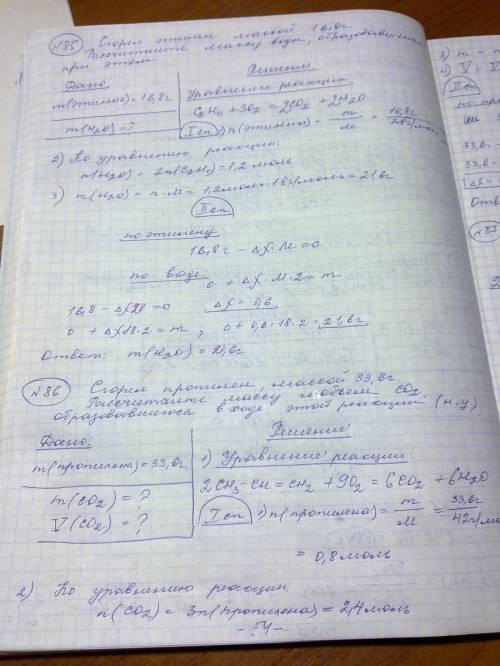 №85 Сгорел этилен массой 16,8г.
Рассчитайте массу воды, образовавшейся
при этом.
Дано
Решение
m(этилена) = 16,8г
m(H₂O) = ?
Уравнение реакции
C₂H₄ + 3O₂ = 2CO₂ + 2H₂O
I сп 1) n(этилена) = m/M = 16,8г/28г/моль
2) По уравнению реакции:
n(H₂O) = 2n(C₂H₄) = 1,2 моль
3) m(H₂O) = n·M = 1,2моль·18г/моль = 21,6г
II сп
по этилену
16,8г – ΔX·M = 0
по воде
0 + ΔX·M·2 = m
16,8 – ΔX28 = 0    ΔX = 0,6
0 + ΔX18·2 = m ; 0 + 0,6·18·2 = 21,6г
Ответ: m(H₂O) = 21,6г
№86 Сгорел пропилен, массой 33,6г.
Рассчитайте массу и объем CO₂,
образовавшегося в ходе этой реакции (н.у)
Дано:
Решение
m(пропилена) = 33,6г
m(CO₂) = ?
V(CO₂) = ?
1) Уравнение реакции:
2CH₃-CH=CH₂ + 9O₂ = 6CO₂ + 6H₂O
I сп 1) n(пропилена) = m/M = 33,6г/42г/мо
= 0,8моль
2) По уравнению реакции.
n(CO₂) = 3n(пропилена) = 2,4моль
- 54 -
3) m
4) V = V
II сп
33,8
33,6
ΔX =
Отве
№87